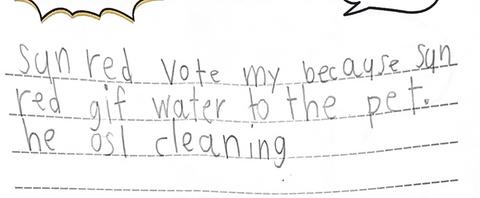 syn red vote my because syn
red gif water to the pet.
he osl cleaning